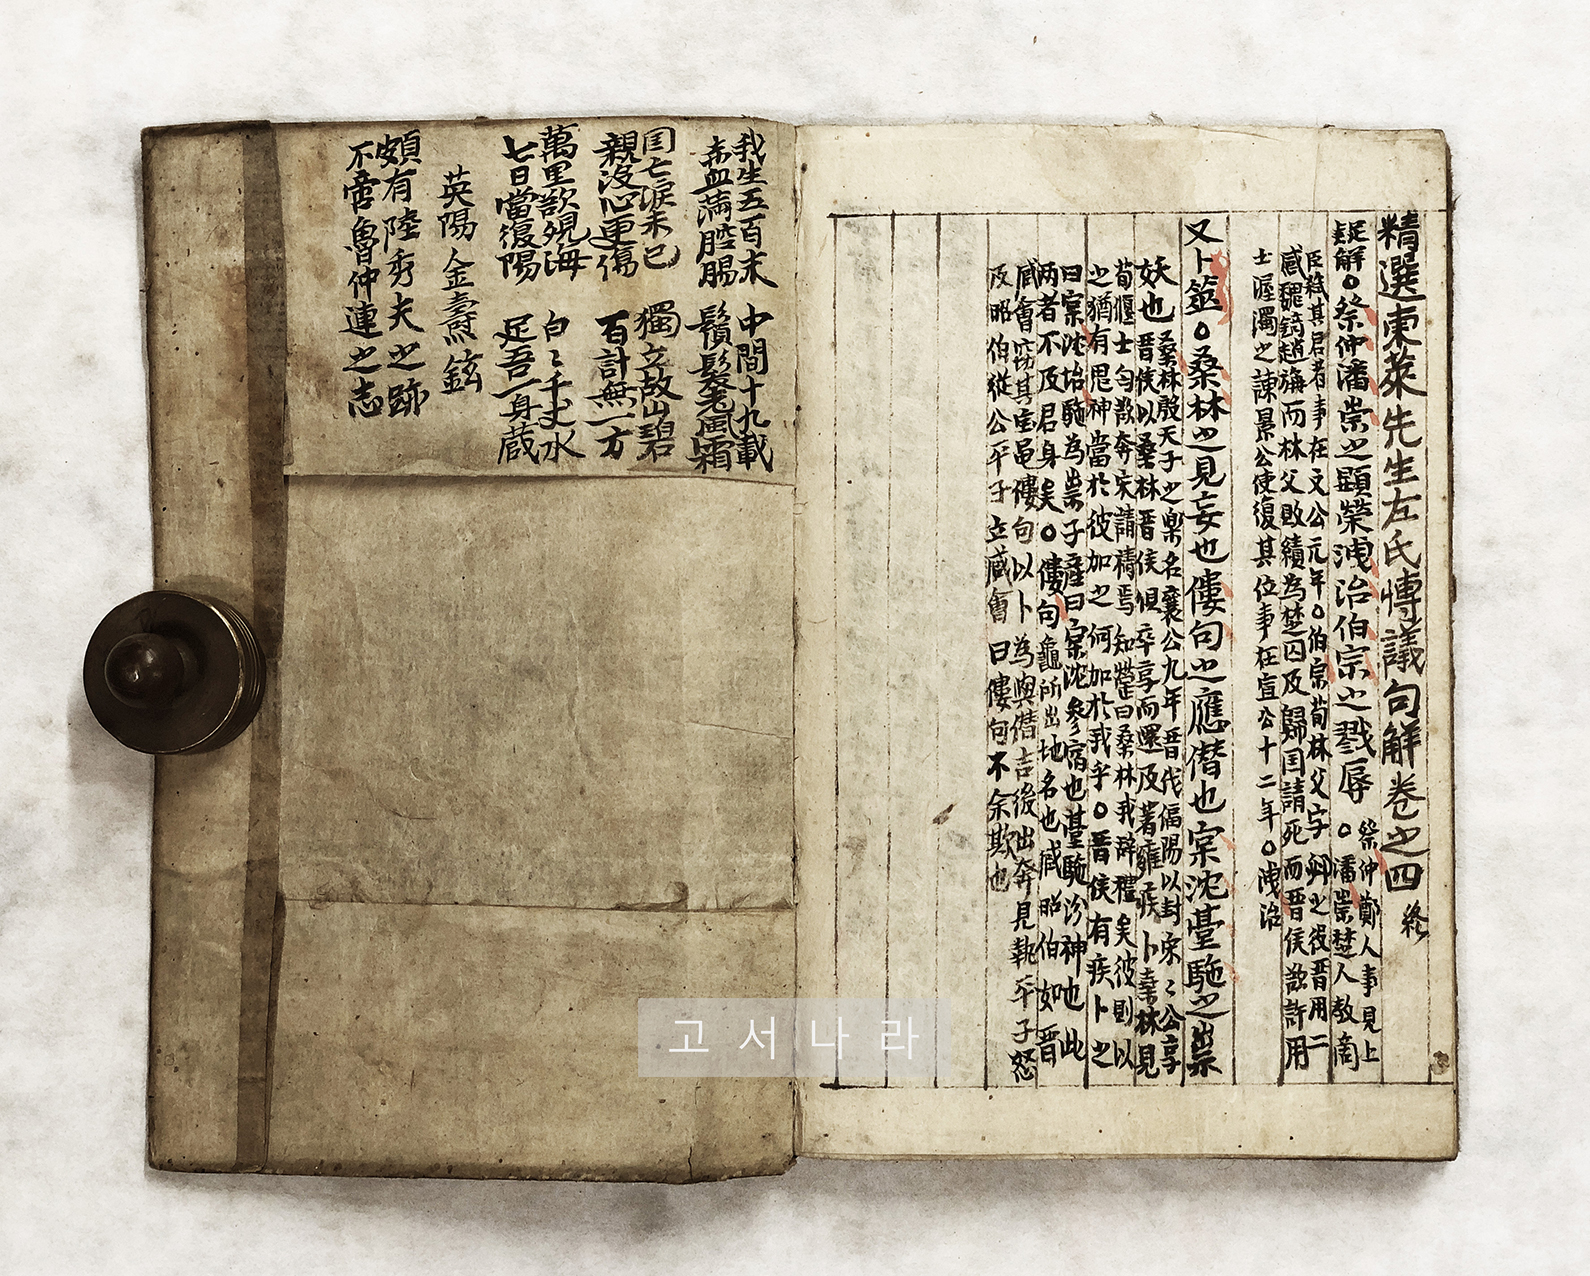 精選東萊先生左氏博議句解卷之四 終
疑解○祭仲潘崇之顯榮洩治伯宗之戮辱○祭仲鄭人事見上
潘崇楚人敎商
臣弑其君者事在文公元年○伯宗荀林父字邲之役晉用二
臧魏錡趙旃而林父敗績為楚囚及歸囯請死而晉侯欲許用
士渥濁之諫景公使復其位事在宣公十二年○洩治
又卜筮○桑林之見妄也僂句之應僭也宲沈臺駘之祟
妖也 桑林殷天子之樂名襄公九年晉伐偪陽以封宋〻公享
晉侯以桑林晉侯惧卒享而還及著雍疾卜桑林見
荀偃士匄欲奔宋請禱焉知罃曰桑林我辞禮矣彼則以
之猶有鬼神當於彼加之何加於我乎○晉侯有疾卜之
曰宲沈坮駘為祟子產曰宲沈參宿也臺駘汾神也此
两者不及君身矣○僂句龜所出地名也臧昭伯如晉
臧會窃其宝龜僂句以卜為與僭吉後出奔見執平子怒
及昭伯從公平子立臧會曰僂句不余欺也
我生五百末 中間十九載
赤血滿腔膓 鬚髮老風霜
囯亡淚未已 獨立故山碧
親沒心更傷 百計無一方
萬里欲觀海 白〻千丈水
七日當復陽 足吾一身蔵
英陽 金燾鉉
頗有陸秀夫之跡
不啻魯仲連之志
고서나라